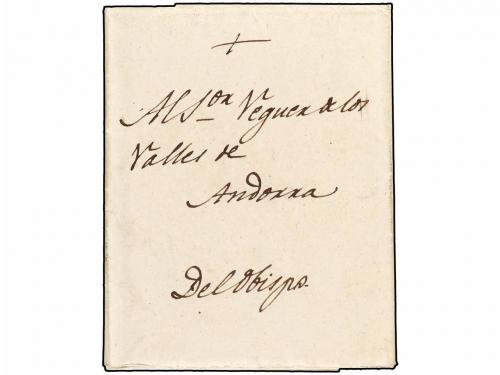 +
Al S.or Veguer de los
Valles de
Andorra
Del Obispo.